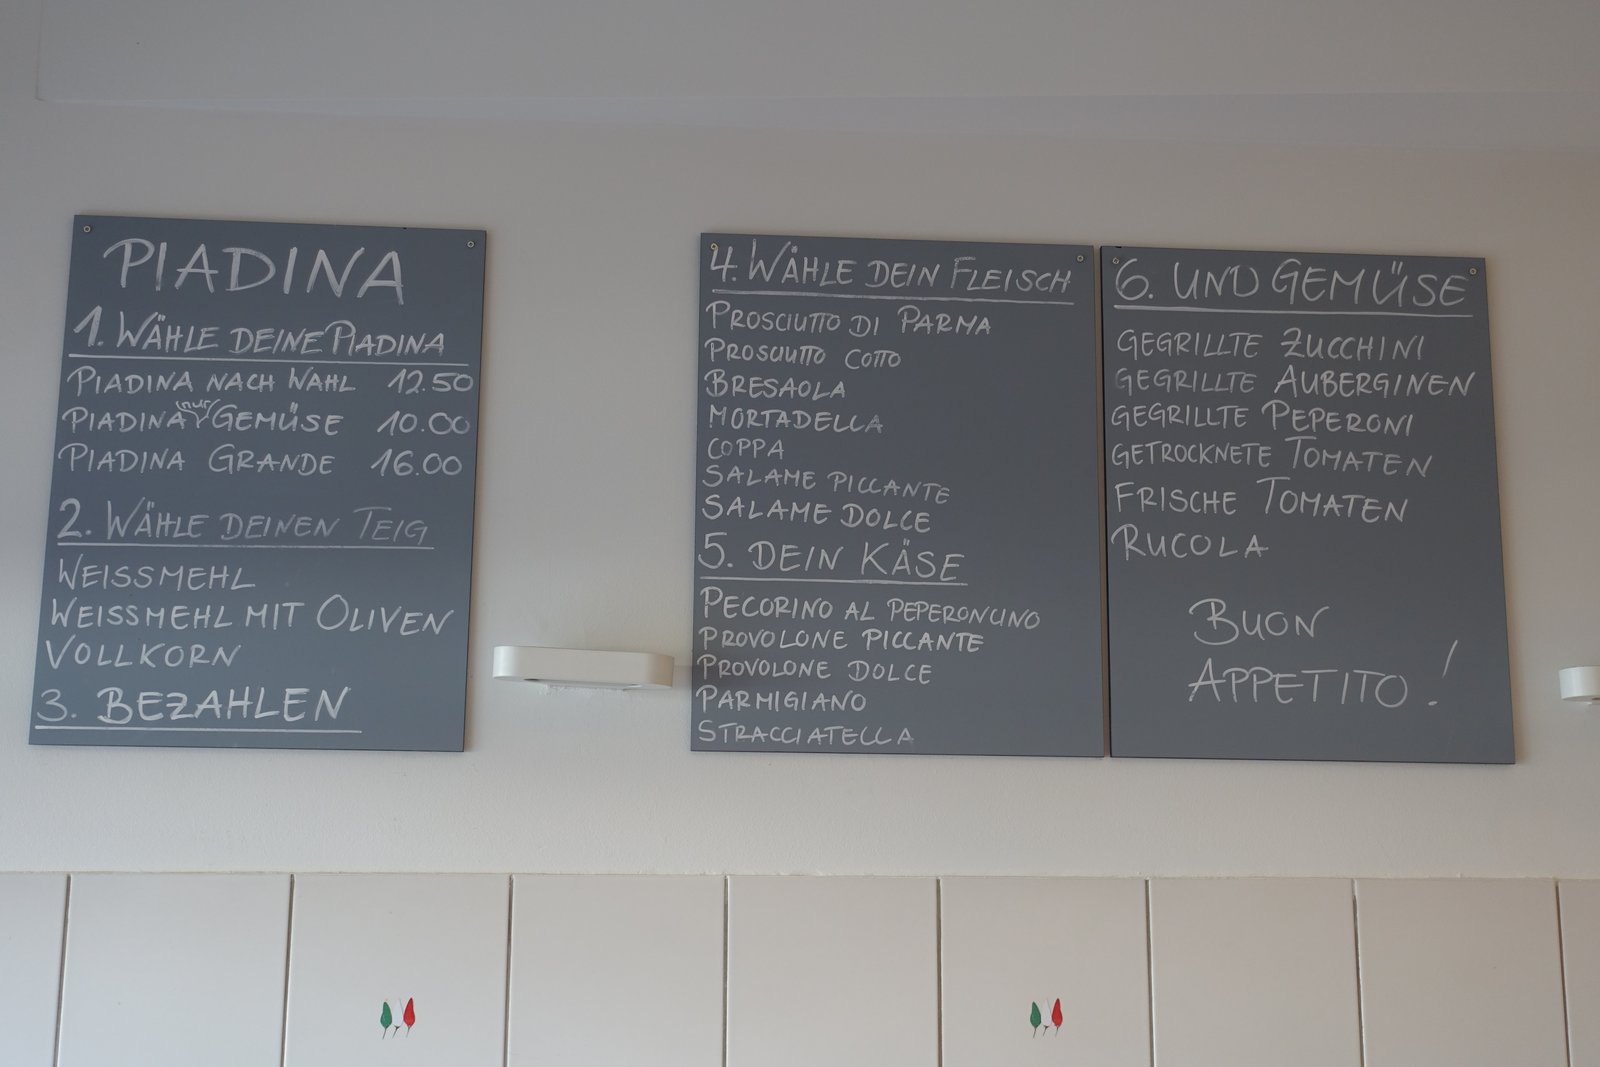 PIADINA
1. WÄHLE DEINE PIADINA
PIADINA NACH WAHL 12.50
PIADINA (nur) GEMÜSE 10.00
PIADINA GRANDE 16.00
2. WÄHLE DEINEN TEIG
WEISSMEHL
WEISSMEHL MIT OLIVEN
VOLLKORN
3. BEZAHLEN
4. WÄHLE DEIN FLEISCH
PROSCIUTTO DI PARMA
PROSCIUTTO COTTO
BRESAOLA
MORTADELLA
COPPA
SALAME PICCANTE
SALAME DOLCE
5. DEIN KÄSE
PECORINO AL PEPERONCINO
PROVOLONE PICCANTE
PROVOLONE DOLCE
PARMIGIANO
STRACCIATELLA
6. UND GEMÜSE
GEGRILLTE ZUCCHINI
GEGRILLTE AUBERGINEN
GEGRILLTE PEPERONI
GETROCKNETE TOMATEN
FRISCHE TOMATEN
RUCOLA
BUON
APPETITO!